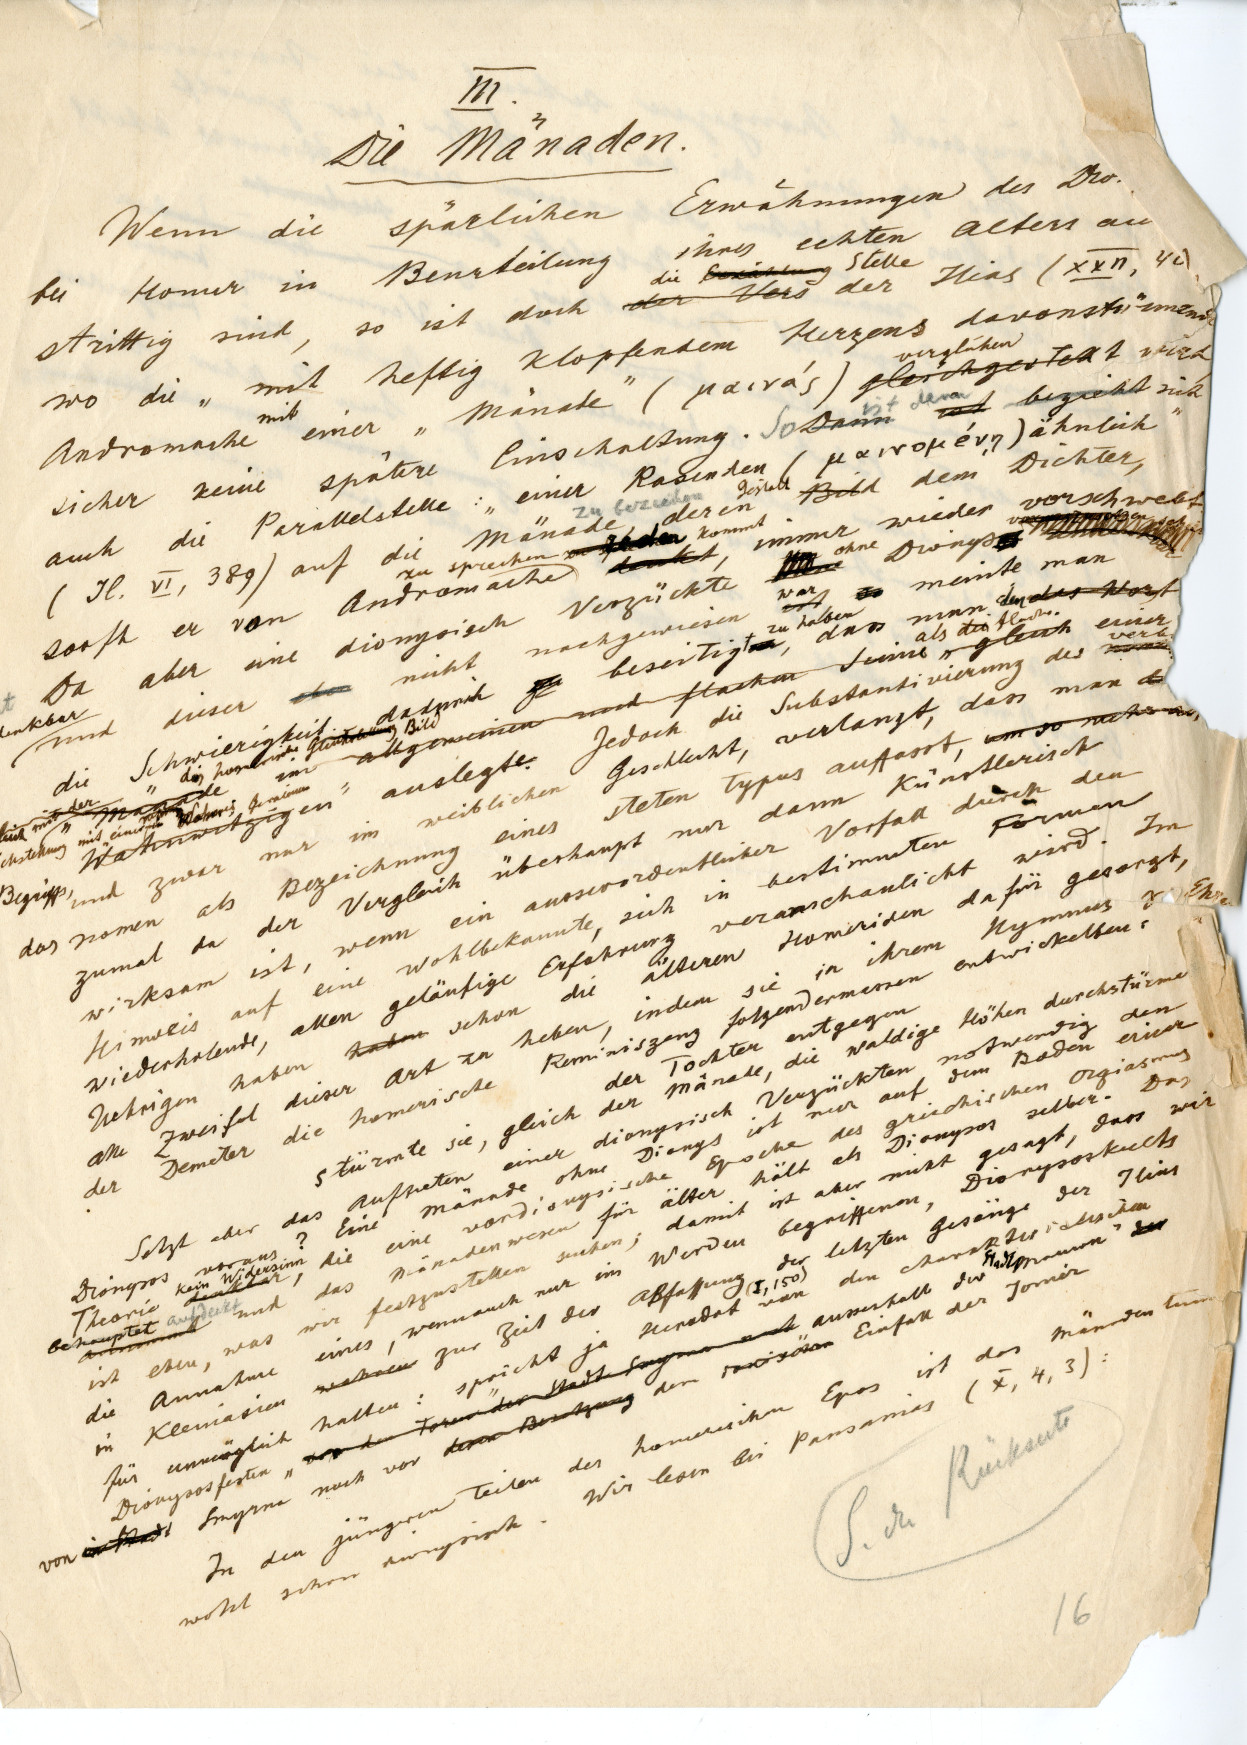 III.
Die Mänaden.
Wenn die spärlichen Erwähnungen des Dio.
bei Homer in Beurteilung ihres echten Alters au
strittig sind, so ist doch der Vers die Erzählung Stelle der Ilias (XXII, 46
wo die „mit heftig klopfendem Herzens davonstürmende
Andromache mit einer „Mänade" (μαινάς) gleichgestellt verglichen wird
sicher keine spätere Einschaltung. So Dann ist dann ist bezieht sich
auch die Parallelstelle: „einer Rasenden (μαινομένη) ähnlich"
(Il. VI, 389) auf die Mänade zu beziehen, deren Bild Gestalt dem Dichter,
sooft er von Andromache zu sprechen kommt denkt, immer wieder vorschwebt
Da aber eine dionysisch Verzückte ohne Dionysos
und dieser nicht nachgewiesen war ist meinte man
denkbar
die Schwierigkeit dadurch beseitigt zu haben, dass man das Wort
„Mänade" im allgemeinen und flachen Sinne „gleich einer
Wahnwitzigen" auslegte. Jedoch die Substantivierung des
Begriffs, und zwar nur im weiblichen Geschlecht, verlangt, dass man
das nomen als Bezeichnung eines steten Typus auffasst, um so mehr
zumal da der Vergleich überhaupt nur dann künstlerisch
wirksam ist, wenn ein ausserordentlicher Vorfall durch den
Hinweis auf eine wohlbekannte, sich in bestimmten Formen
wiederholende, allen geläufige Erfahrung veranschaulicht wird. Im
Uebrigen haben haben schon die älteren Homeriden dafür gesorgt,
alle Zweifel dieser Art zu heben, indem sie in ihrem Hymnus zu Ehre
der Demeter die homerische Reminiszenz folgendermassen entwickelten:
der Tochter entgegen
stürmte sie, gleich der Mänade, die waldige Höhen durchstürme
Setzt aber das Auftreten einer dionysisch Verzückten notwendig den
Dionysos voraus? Eine Mänade ohne Dionys ist nur auf dem Boden einer
Theorie kein Widersinn denkbar, die eine vordionysische Epoche des griechischen Orgiasmus
behauptet annimmt aufdeckt und das Mänadenwesen für älter hält als Dionysos selber. Das
ist eben, was wir festzustellen suchen; damit ist aber nicht gesagt, dass wir
die Annahme eines, wennauch nur im Werden begriffenen, Dionysoskults
in Kleinasien zur Zeit der Abfassung der letzten Gesänge der Ilias
für unmöglich halten: spricht ja Herodot (I, 150) von den charakteristischen
Dionysosfesten „vor den Toren der Stadt Smyrna ausserhalb der Stadtmauern"
von Smyrna noch vor deren Besetzung dem Einfall der Jonier
In den jüngeren Teilen des homerischen Epos ist das Mänadentum
wohl schon dionysisch. Wir lesen bei Pausanias (X, 4, 3):
S. die Rückseite
16